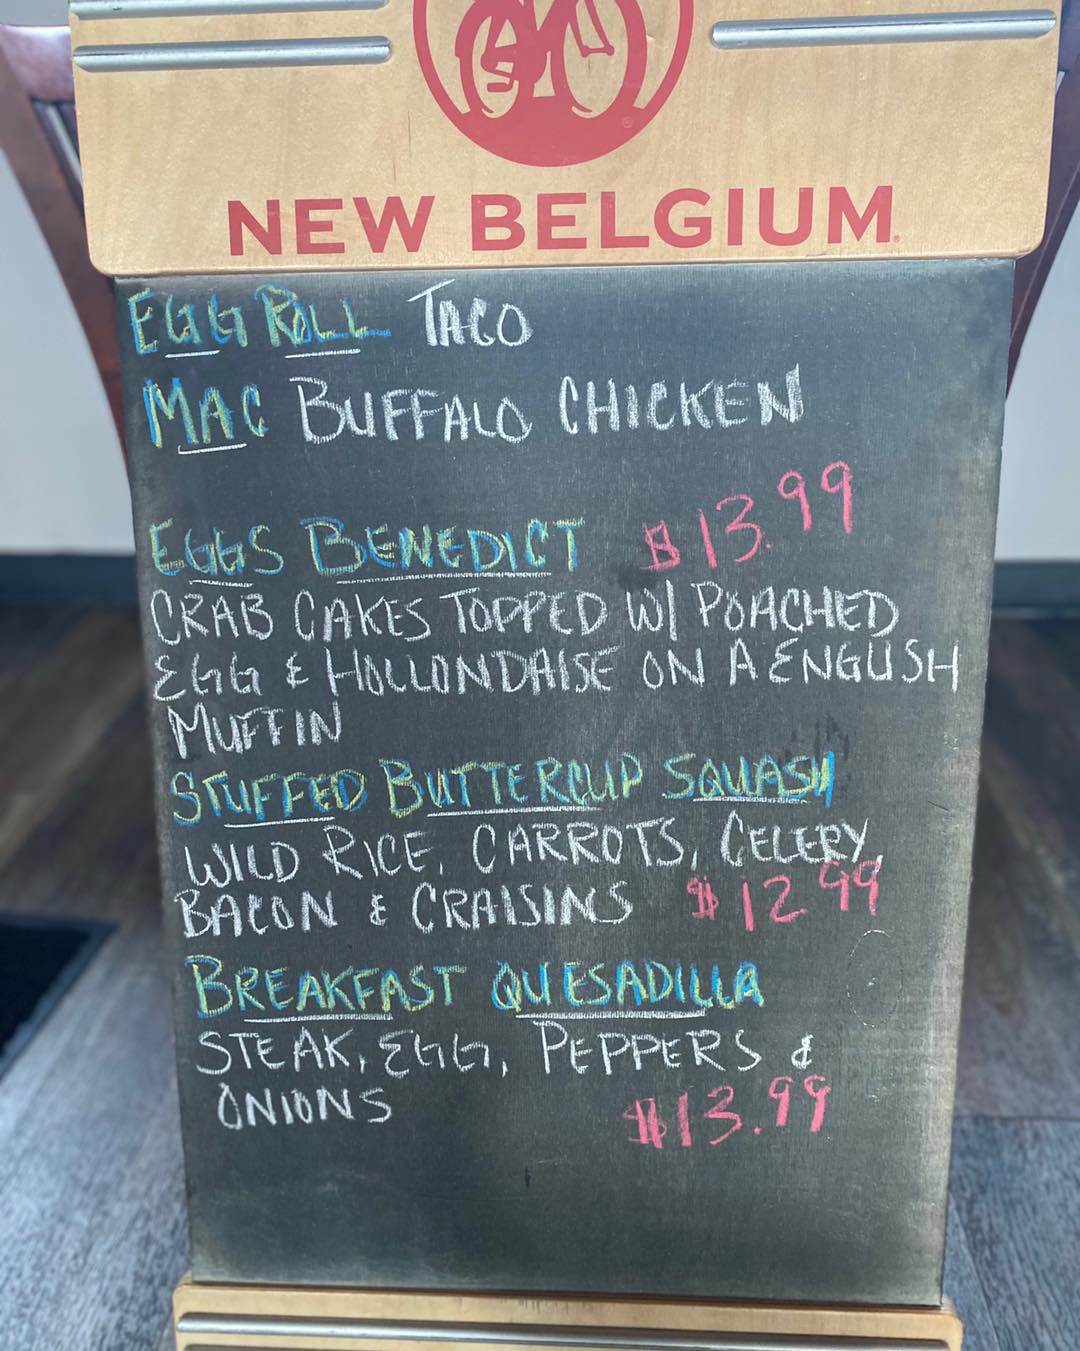 NEW BELGIUM®
EGG ROLL TACO
MAC BUFFALO CHICKEN
EGGS BENEDICT $13.99
CRAB CAKES TOPPED W/ POACHED
EGG & HOLLONDAISE ON A ENGLISH
MUFFIN
STUFFED BUTTERCUP SQUASH
WILD RICE, CARROTS, CELERY,
BACON & CRAISINS $12.99
BREAKFAST QUESADILLA
STEAK, EGG, PEPPERS &
ONIONS $13.99